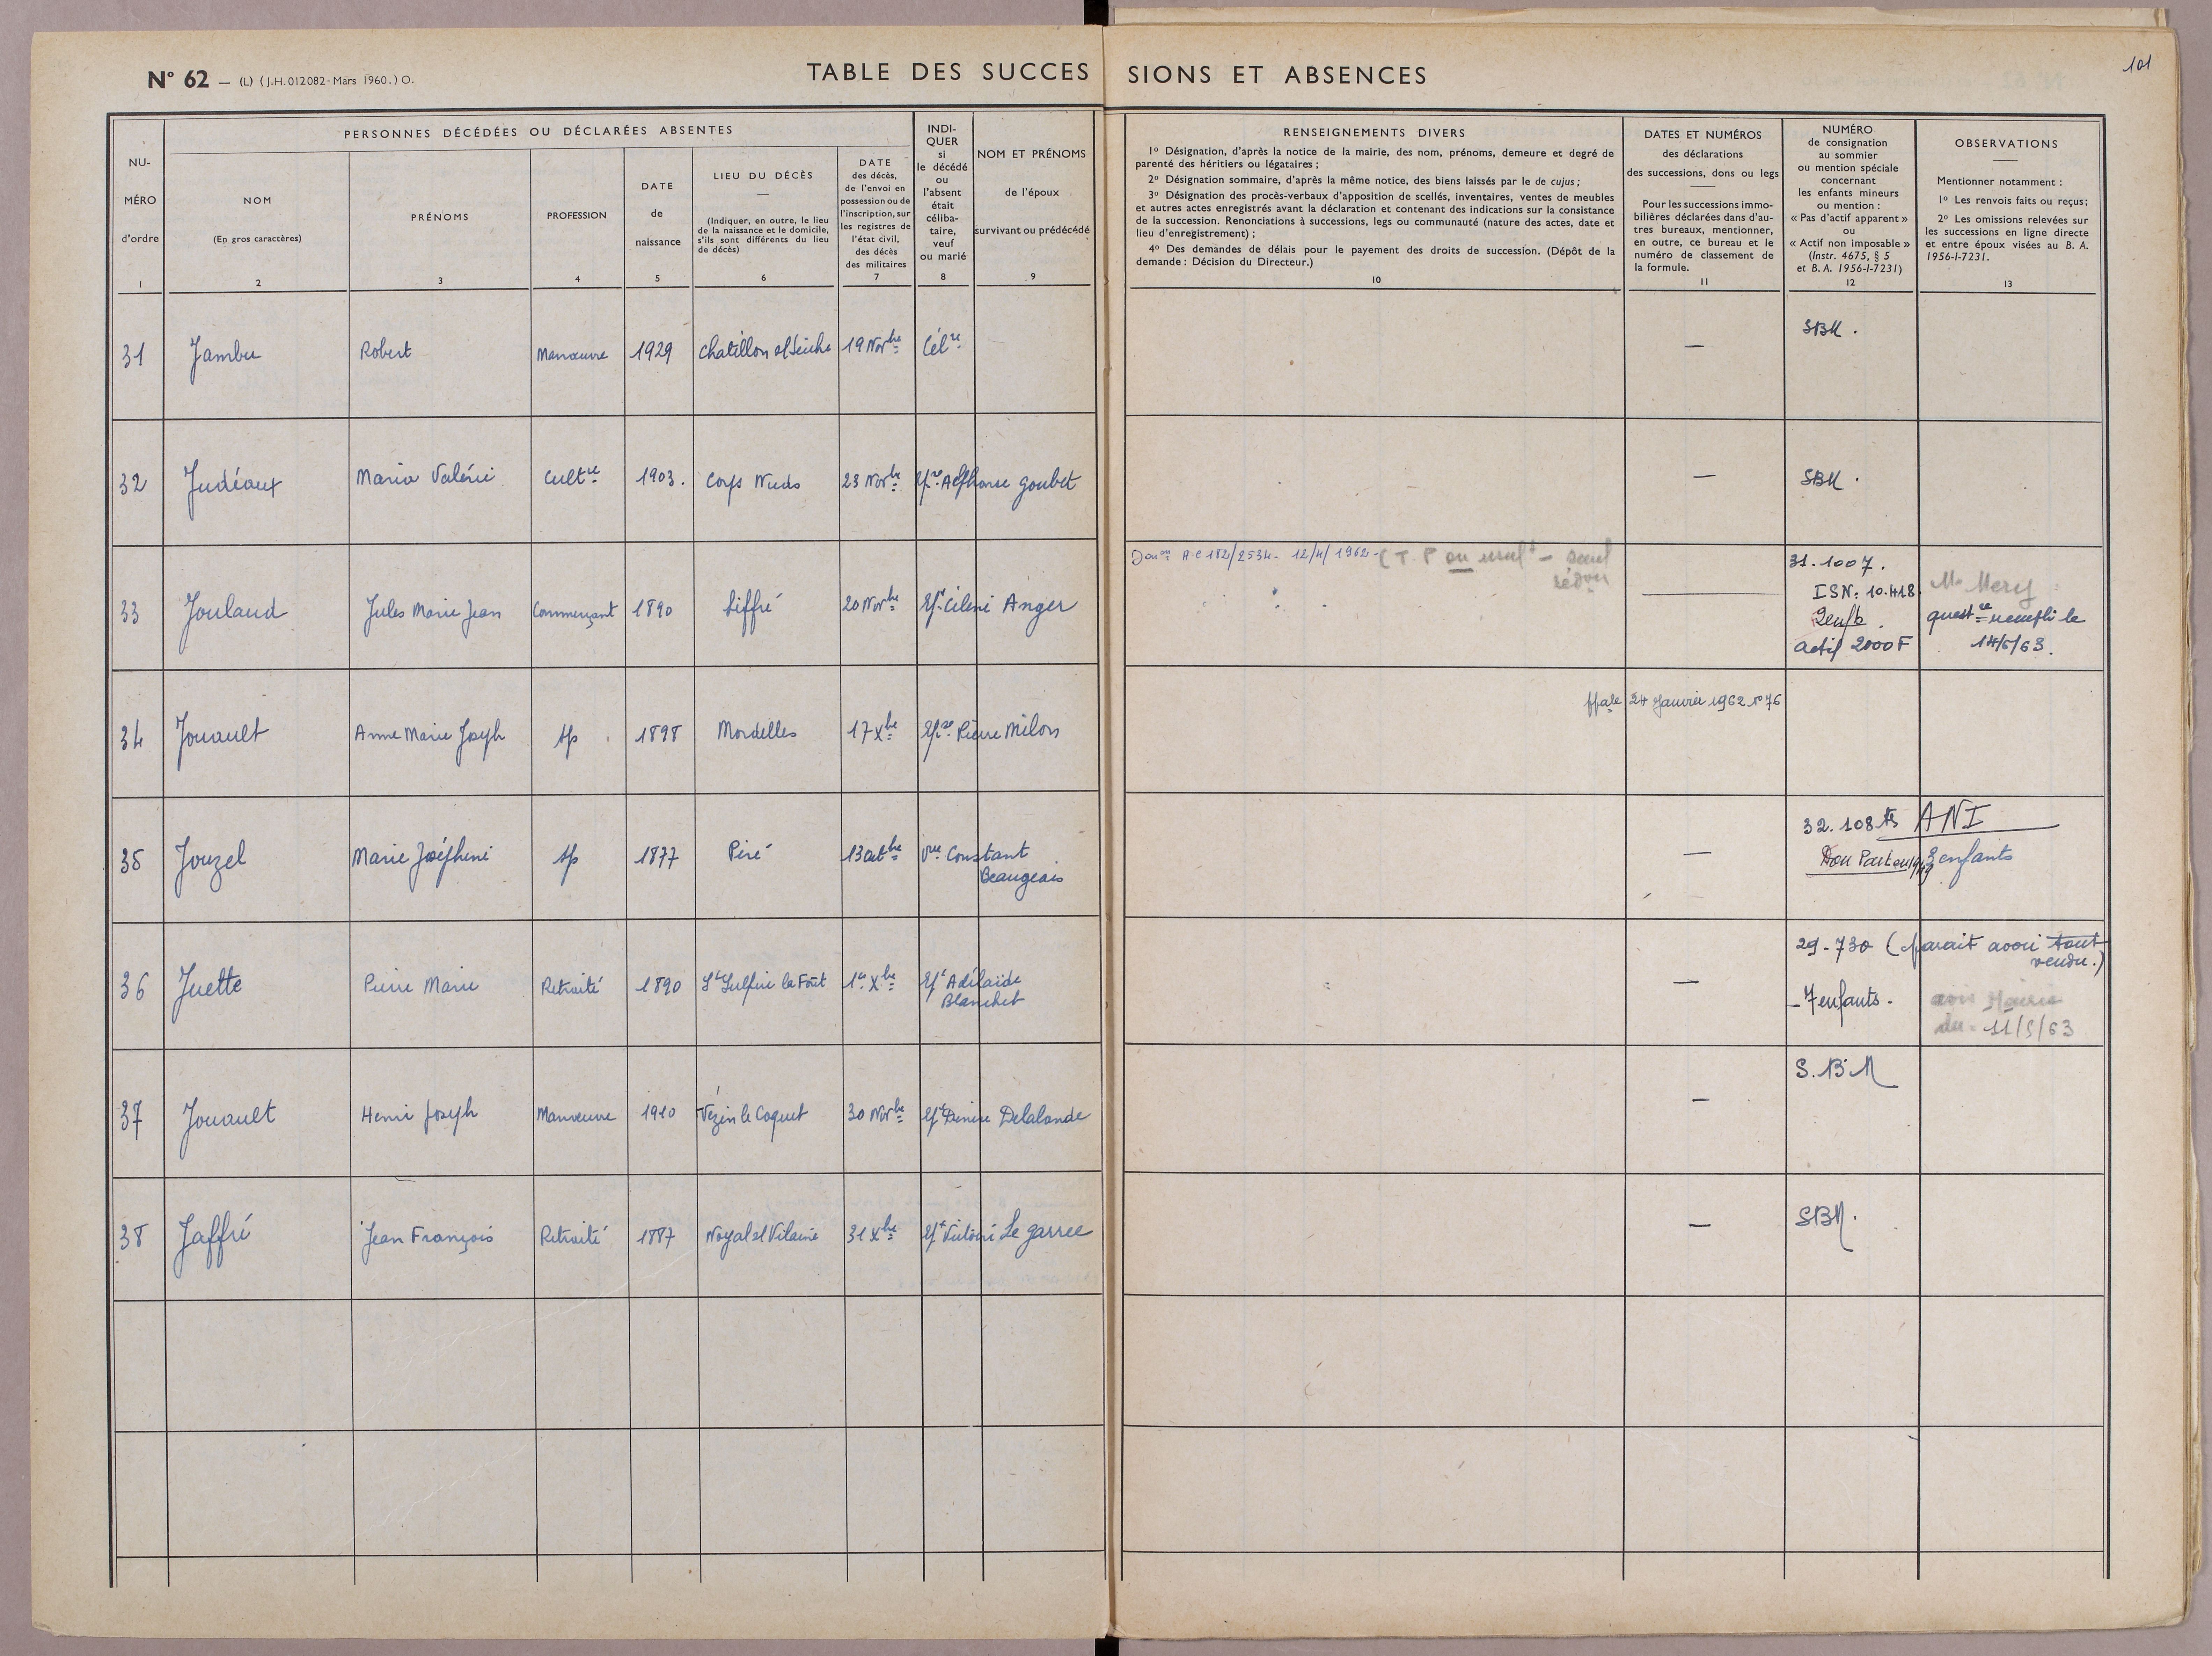 N° 62 — (L) (J.H. 012082 - Mars 1960.) O.
TABLE DES SUCCES SIONS ET ABSENCES
101
NU-
MÉRO
d'ordre
1
PERSONNES DÉCÉDÉES OU DÉCLARÉES ABSENTES
NOM
(En gros caractères)
2
PRÉNOMS
3
PROFESSION
4
DATE
de
naissance
5
LIEU DU DÉCÈS
(Indiquer, en outre, le lieu
de la naissance et le domicile,
s'ils sont différents du lieu
de décès)
6
DATE
des décès,
de l'envoi en
possession ou de
l'inscription, sur
les registres de
l'état civil,
des décès
des militaires
7
INDI-
QUER
si
le décédé
ou
l'absent
était
céliba-
taire,
veuf
ou marié
8
NOM ET PRÉNOMS
de l'époux
survivant ou prédécédé
9
RENSEIGNEMENTS DIVERS
1° Désignation, d'après la notice de la mairie, des nom, prénoms, demeure et degré de
parenté des héritiers ou légataires ;
2° Désignation sommaire, d'après la même notice, des biens laissés par le de cujus ;
3° Désignation des procès-verbaux d'apposition de scellés, inventaires, ventes de meubles
et autres actes enregistrés avant la déclaration et contenant des indications sur la consistance
de la succession. Renonciations à successions, legs ou communauté (nature des actes, date et
lieu d'enregistrement) ;
4° Des demandes de délais pour le payement des droits de succession. (Dépôt de la
demande : Décision du Directeur.)
10
DATES ET NUMÉROS
des déclarations
des successions, dons ou legs
Pour les successions immo-
bilières déclarées dans d'au-
tres bureaux, mentionner,
en outre, ce bureau et le
numéro de classement de
la formule.
11
NUMÉRO
de consignation
au sommier
ou mention spéciale
concernant
les enfants mineurs
ou mention :
« Pas d'actif apparent »
ou
« Actif non imposable »
(Instr. 4675, § 5
et B. A. 1956-I-7231)
12
OBSERVATIONS
Mentionner notamment :
1° Les renvois faits ou reçus ;
2° Les omissions relevées sur
les successions en ligne directe
et entre époux visées au B. A.
1956-I-7231.
13
31 Jambu Robert Manœuvre 1929 Chatillon s/ Seiche 19 Novbre Célre — SBM.
32 Judéaux Maria Valérie Cultre 1903. Corps Nuds 23 Novbre Epse Alphonse Goubet — SBM.
Donon A.C 182/2534 - 12/4/1962 - (T. P ou usuft —
33 Joulaud Jules Marie Jean Commerçant 1890 Liffré 20 Novbre Ept Célenie Anger —
31.1007.
ISN: 10.418
2 enfts.
actif 2000 F
M. Mery
questre rempli le
14/6/63.
34 Jouault Anne Marie Joseph sp 1898 Mordelles 17 Xbre Epse Pierre Milon
24 Janvier 1962 n° 76
35 Jouzel Marie Joséphine sp 1877 Piré 13 Octbre Vve Constant
Beaugeais
—
32. 108 ts ANI
Don Part en 1949 3 enfants
36 Juette Pierre Marie Retraité 1890 St Sulpice la Forêt 1er Xbre Ept Adélaïde
Blanchet
—
29-730 (parait avoir tout
vendu.)
- 7 enfants -
avis Mairie
du 11/5/63
37 Jouault Henri Joseph Manœuvre 1910 Vézin le Coquet 30 Novbre Ept Denise Delalande — S.B.M
38 Jaffré Jean François Retraité 1887 Noyal s/ Vilaine 31 Xbre Ept Victoire Le Garrec — SBM.